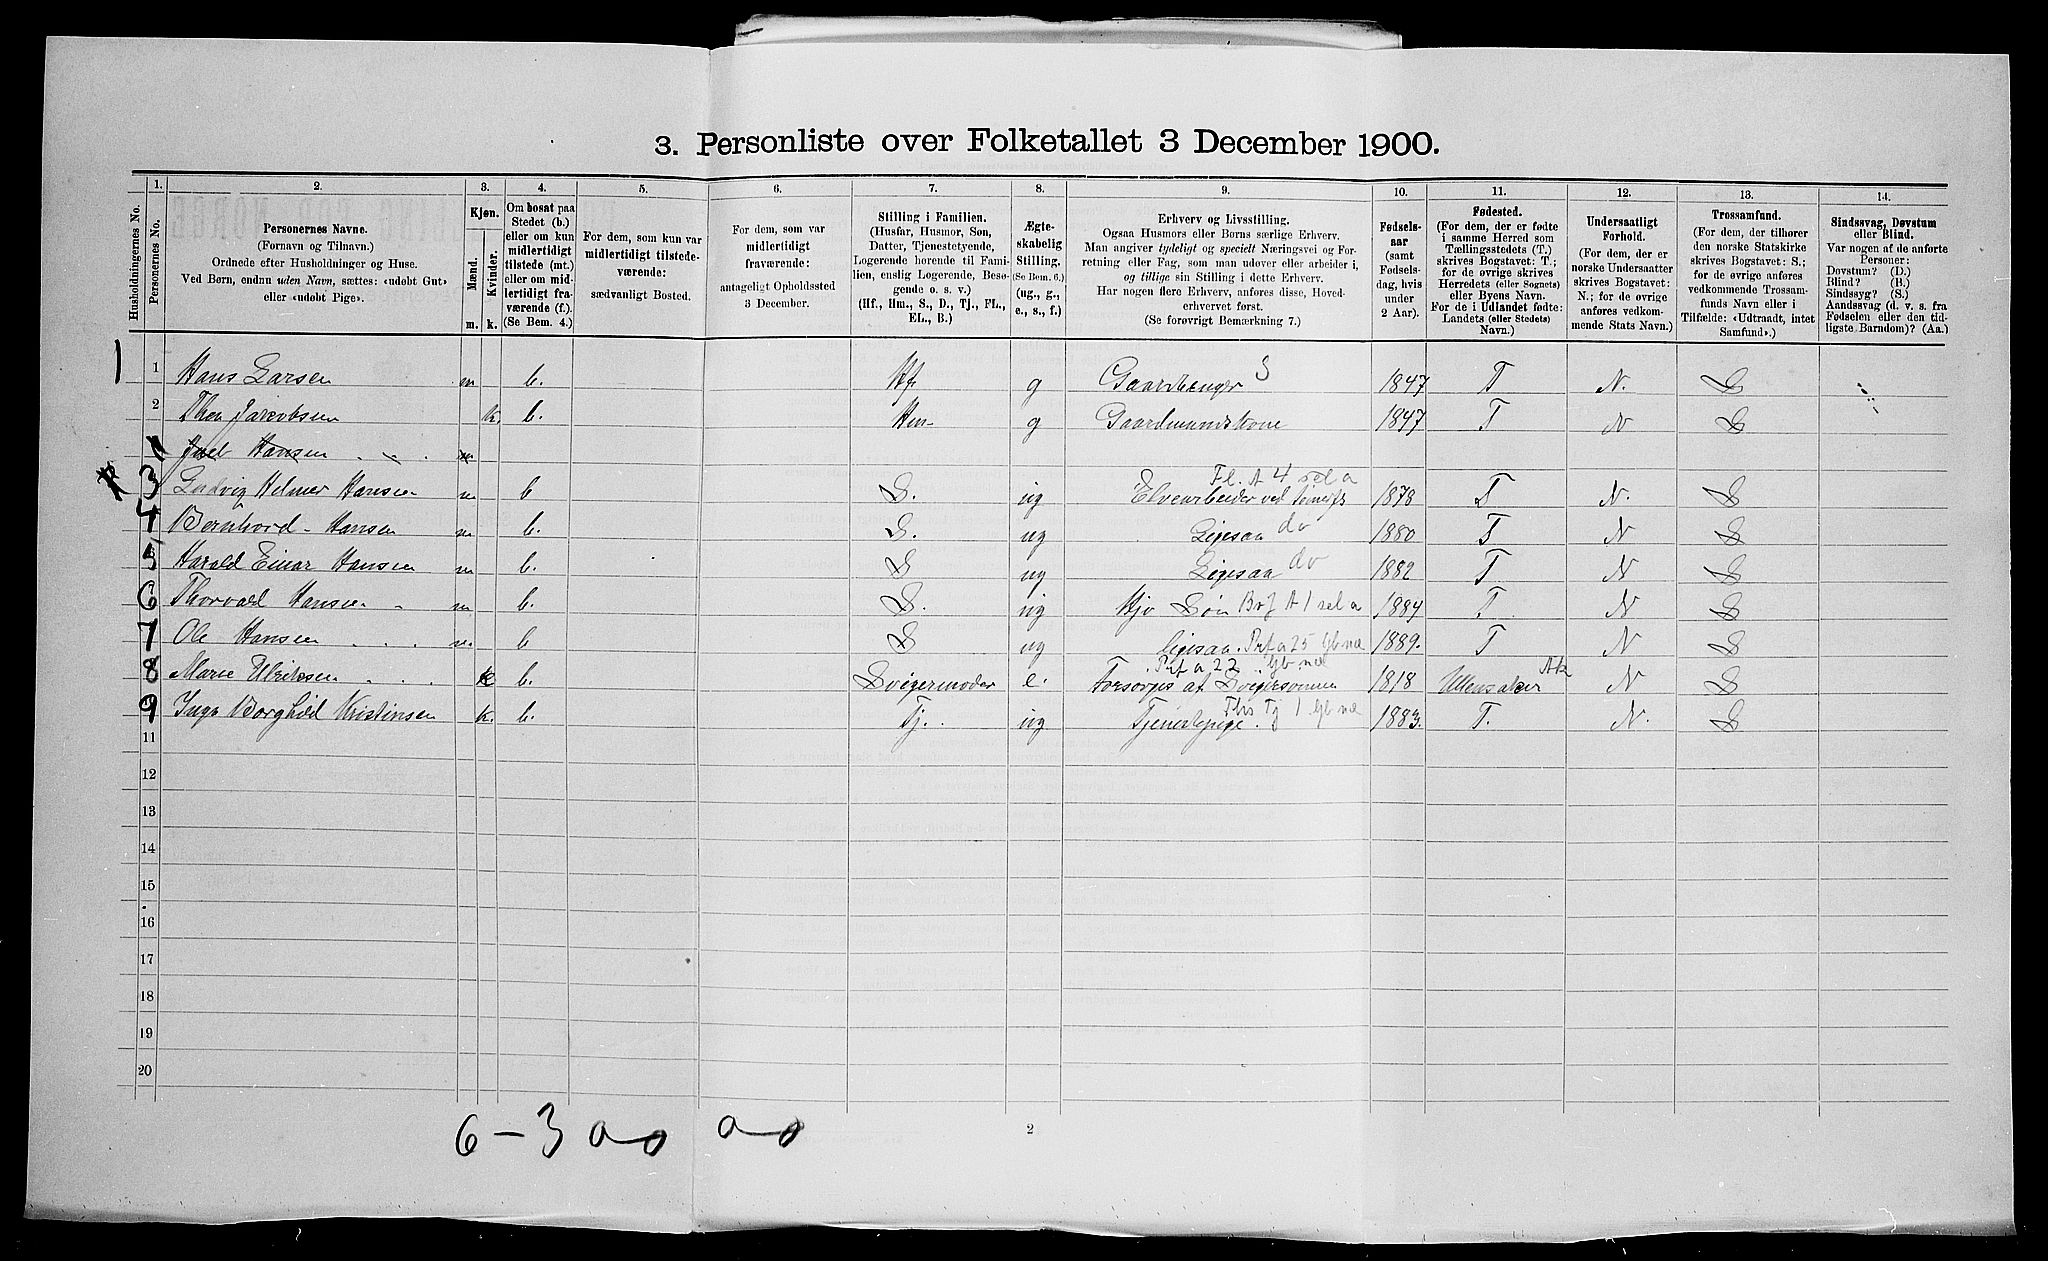 3. Personliste over Folketallet 3 December 1900.
1. 2. 3. 4. 5. 6. 7. 8. 9. 10. 11. 12. 13. 14.
Husholdningernes No.
Personernes No.
Personernes Navne.
(Fornavn og Tilnavn.)
Ordnede efter Husholdninger og Huse.
Ved Børn, endnu uden Navn, sættes: «udøbt Gut»
eller «udøbt Pige».
Kjøn.
Mænd.
Kvinder.
m. k.
Om bosat paa
Stedet (b.)
eller om kun
midlertidigt
tilstede (mt.)
eller om mid-
lertidigt fra-
værende (f.).
(Se Bem. 4.)
For dem, som kun var
midlertidigt tilstede-
værende:
sædvanligt Bosted.
For dem, som var
midlertidigt
fraværende:
antageligt Opholdssted
3 December.
Stilling i Familien.
(Husfar, Husmor, Søn,
Datter, Tjenestetyende,
Logerende hørende til Fami-
lien, enslig Logerende, Besø-
gende o. s. v.)
(Hf., Hm., S., D., Tj., FL.,
EL., B.)
Ægte-
skabelig
Stilling.
(Se Bem. 6.)
(ug., g.,
e., s., f.)
Erhverv og Livsstilling.
Ogsaa Husmors eller Børns særlige Erhverv.
Man angiver tydeligt og specielt Næringsvei og For-
retning eller Fag, som man udøver eller arbeider i,
og tillige sin Stilling i dette Erhverv.
Har nogen flere Erhverv, anføres disse, Hoved-
erhvervet først.
(Se forøvrigt Bemærkning 7.)
Fødsels-
aar
(samt
Fødsels-
dag, hvis
under
2 Aar).
Fødested.
(For dem, der er fødte
i samme Herred som
Tællingsstedets (T.)
skrives Bogstavet: T.;
for de øvrige skrives
Herredets (eller Sognets)
eller Byens Navn.
For de i Udlandet fødte:
Landets (eller Stedets)
Navn.)
Undersaatligt
Forhold.
(For dem, der er
norske Undersaatter
skrives Bogstavet:
N.; for de øvrige
anføres vedkom-
mende Stats Navn.)
Trossamfund.
(For dem, der tilhører
den norske Statskirke
skrives Bogstavet: S.;
for de øvrige anføres
vedkommende Trossam-
funds Navn eller i
Tilfælde: «Udtraadt, intet
Samfund».)
Sindssvag, Døvstum
eller Blind.
Var nogen af de anførte
Personer:
Døvstum? (D.)
Blind? (B.)
Sindssyg? (S.)
Aandssvag (d. v. s. fra
Fødselen eller den tid-
ligste Barndom)? (Aa.)
1 1 Hans Larsen m b. Hf g Gaardbruger S 1847 T N. S
2 Thea Jacobsen k. b. Hm g Gaardmandskone 1847 T N S
Hansen m
Fl. A 4 sel a
3 Ludvig Helmer Hansen m b S. ug Elvearbeider ved 1878 T N. S
4 Bernhard Hansen m b. S. ug Ligesaa do 1880 T N S
5 Harald Einar Hansen m b. S ug Ligesaa do 1882 T N S
6 Thorvald Hansen m b. S. ug Hjv Søn A 1 sel a 1884 T. N S
7 Ole Hansen m. b S ug ligesaa. Prf a 25 gb næ 1889. T N S
Prf a 22 gb næ
8 Marie Ulriksen k b. Svigermoder e. Forsørges af Svigersønnen 1818 Ullensaker Ak N S
9 Inga Borghild Kristinsen k. b. Tj. ug Tjenestepige. Ths Tj 1 gb næ 1883. T. N. S
11
12
13
14
15
16
17
18
19
20
6 - 3
2